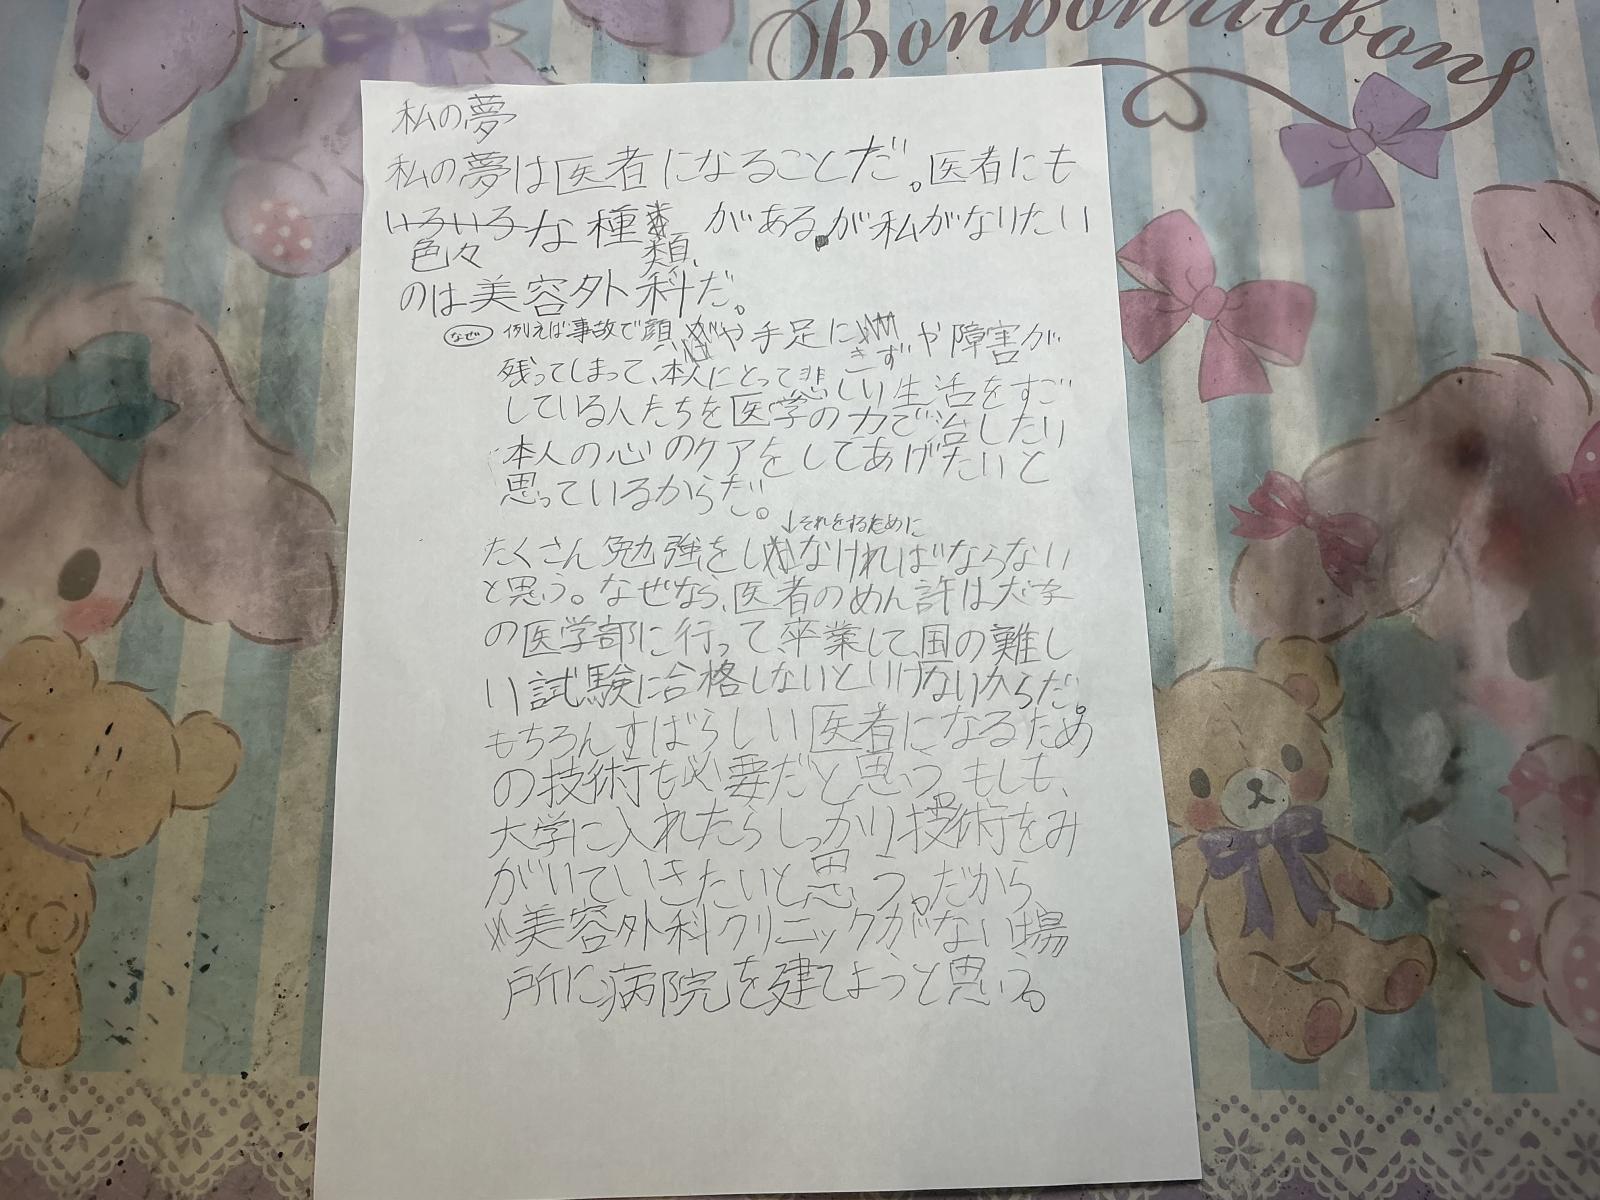 Bonbonribbons
私の夢
私の夢は医者になることだ。医者にも
いろいろな種 があるが私がなりたい
色々 類
のは美容外科だ。
なぜ 例えば事故で顔 や手足に や障害が
きず
残ってしまって、本人にとって悲しい生活をすご
している人たちを医学の力で治したり
本人の心のケアをしてあげたいと
思っているからだ。
↓それをするために
たくさん勉強をし なければならない
と思う。なぜなら、医者のめん許は大学
の医学部に行って、卒業して、国の難し
い試験に合格しないといけないからだ。
もちろんすばらしい医者になるため
の技術も必要だと思う。もしも、
大学に入れたらしっかり技術をみ
がいていきたいと思う。だから
美容外科クリニックがない場
所に病院を建てようと思いる。